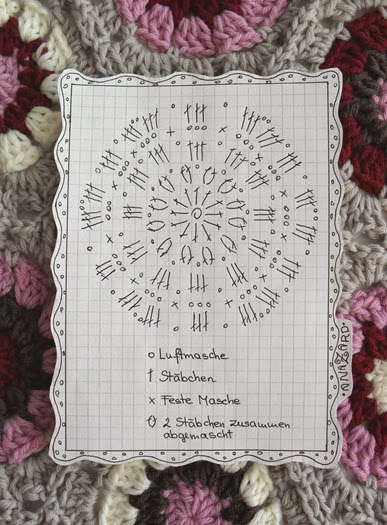 o Luftmasche
† Stäbchen
x Feste Masche
2 Stäbchen zusammen
abgemascht